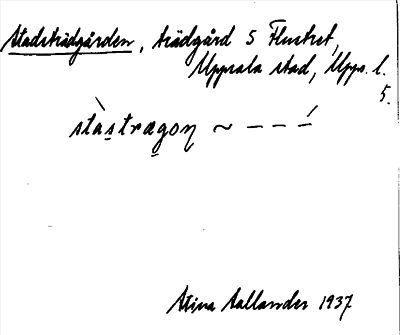 Stadsträdgården, trädgård S Flustret,
Uppsala stad, Upps. l.
5.
stàstrægoɳ ~ – – –́
Stina Sallander 1937